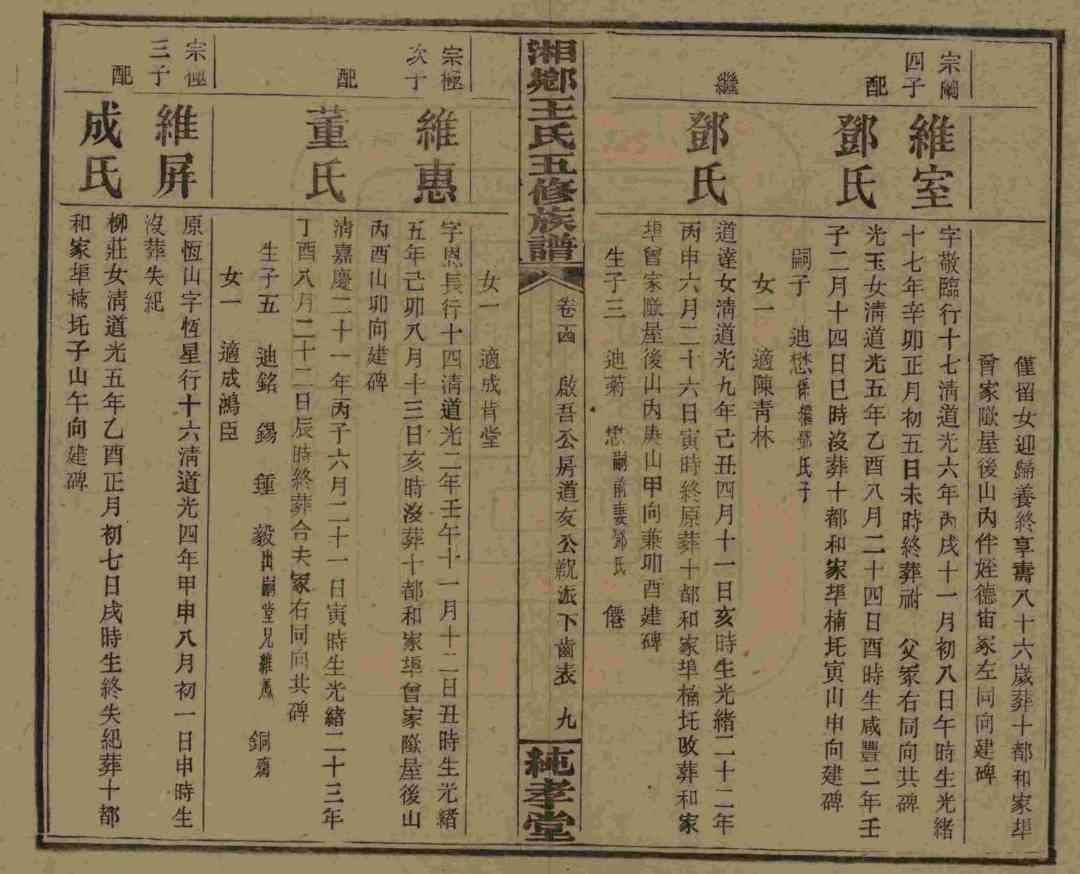 僅留女迎歸養終享壽八十六歲葬十都和家埠
曾家歐屋後山內件姪德宙冢左同向建碑
宗閫
四子
維室
字敬臨行十七淸道光六年丙戌十一月初八日午時生光緒
十七年辛卯正月初五日未時終葬祔 父冢右同向共碑
配
鄧氏
光玉女淸道光五年乙酉八月二十四日酉時生咸豐二年壬
子二月十四日巳時沒葬十都和家埠楠圫寅山申向建碑
嗣子 迪懋係繼鄧氏子
女一 適陳青林
繼
鄧氏
道達女淸道光九年己丑四月十一日亥時生光緒二十二年
丙申六月二十六日寅時終原葬十都和家埠楠圫改葬和家
埠曾家歐屋後山內庚山甲向兼卯酉建碑
生子三 迪菊 懋嗣前妻鄧氏 僊
湘鄉王氏五修族譜
卷十四 啟吾公房道友公親派下齒表 九
純孝堂
女一 適成岩堂
宗極
次子
維惠
字恩長行十四淸道光二年壬午十一月十二日丑時生光緒
五年己卯八月十三日亥時沒葬十都和家埠曾家歐屋後山
丙酉山卯向建碑
配
董氏
淸嘉慶二十一年丙子六月二十一日寅時生光緒二十三年
丁酉八月二十二日辰時終葬合夫冢右同向共碑
生子五 迪銘 錫 鍾 毅出嗣堂兄維鳳 銅殤
女一 適成鴻臣
宗極
三子
維屏
原恆山字恆星行十六淸道光四年甲申八月初一日申時生
沒葬失紀
配
成氏
柳莊女淸道光五年乙酉正月初七日戌時生終失紀葬十都
和家埠楠圫子山午向建碑